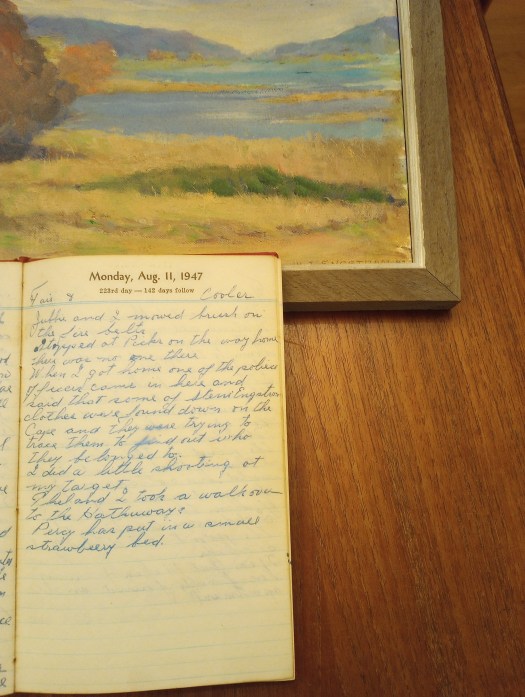 Monday, Aug. 11, 1947
223rd day — 142 days follow
Fair & Cooler
and I mowed brush on
the fire belts
Stopped at on the way home
they was no one there
When I got home one of the police
officers came in here and
said that some of Steve
clothes were found down on the
Cape and they were trying to
trace them to find out who
they belonged to.
I did a little shooting at
my target.
Phil and I took a walk over
to the Hathaways
Percy has put in a small
strawberry bed.